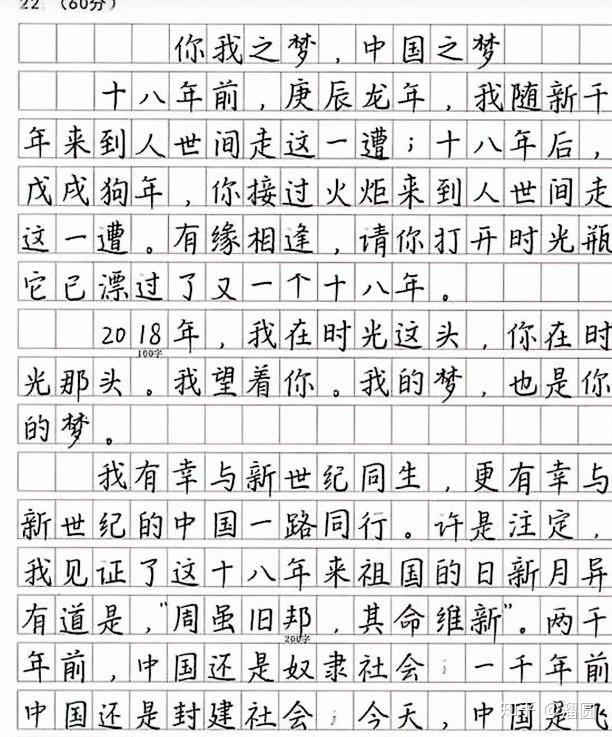 22. (60分)
你我之梦，中国之梦
十八年前，庚辰龙年，我随新千
年来到人世间走这一遭；十八年后，
戊戌狗年，你接过火炬来到人世间走
这一遭。有缘相逢，请你打开时光瓶
它已漂过了又一个十八年。
2018年，我在时光这头，你在时
100字
光那头。我望着你。我的梦，也是你
的梦。
我有幸与新世纪同生，更有幸与
新世纪的中国一路同行。许是注定，
我见证了这十八年来祖国的日新月异
有道是，"周虽旧邦，其命维新"。两千
200字
年前，中国还是奴隶社会；一千年前
中国还是封建社会；今天，中国是飞
知乎 @溜圆